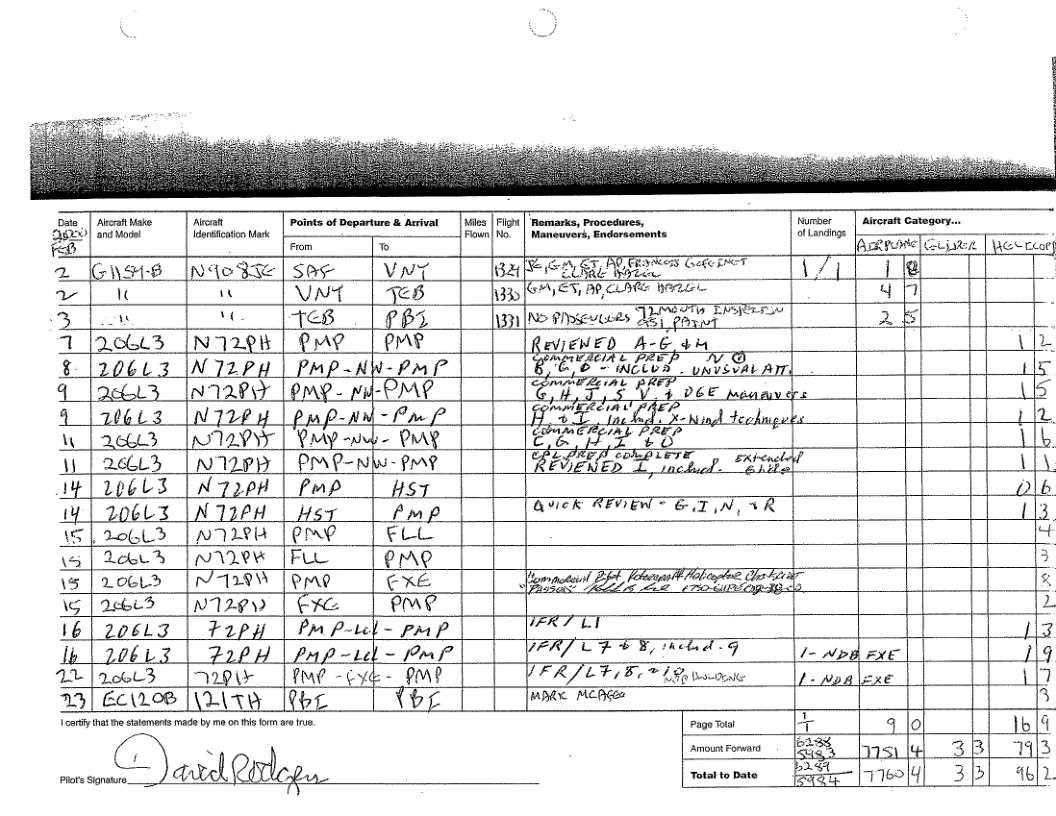 Date Aircraft Make and Model Aircraft Identification Mark Points of Departure & Arrival Miles Flown Flight No. Remarks, Procedures, Maneuvers, Endorsements Number of Landings Aircraft Category...
FEB From To AIRPLANE GLIDER HELICOP
2 G1159-B N908JE SAF VNY 1329 JE, GM, ET, AP, 1/1 1 8
2 " " VNY TEB 1330 GM, ET, AP, CLARE HAZEL 4 7
3 " " TEB PBI 1331 NO PASSENGERS 72 MONTH INSPECTION PAINT 2 5
7 206L3 N72PH PMP PMP REVIEWED A-G & M 1 2
8 206L3 N72PH PMP-NW-PMP COMMERCIAL PREP B, G, O - INCLUD. UNUSUAL ATT. 1 5
9 206L3 N72PH PMP-NW-PMP COMMERCIAL PREP G, H, J, S, V. & OGE maneuvers 1 5
9 206L3 N72PH PMP-NW-PMP COMMERCIAL PREP H & I, includ. X-Wind techniques 1 2
11 206L3 N72PH PMP-NW-PMP COMMERCIAL PREP C, G, H, I & O 1 6
11 206L3 N72PH PMP-NW-PMP CPL PREP COMPLETE REVIEWED I, includ. Extended Glide 1 1
14 206L3 N72PH PMP HST 0 6
14 206L3 N72PH HST PMP QUICK REVIEW - G, I, N, & R 1 3
15 206L3 N72PH PMP FLL 4
15 206L3 N72PH FLL PMP 3
15 206L3 N72PH PMP FXE Commercial Pilot, Rotorcraft Helicopter Checkride 8
15 206L3 N72PH FXE PMP 2
16 206L3 72PH PMP-Lcl-PMP IFR/L1 1 3
16 206L3 72PH PMP-Lcl-PMP IFR/L7 & 8, includ. 9 1-NDB FXE 1 9
22 206L3 72PH PMP-FXE-PMP IFR/L7, 8, HOLDING 1-NDB FXE 1 7
23 EC120B 121TH PBI PBI 3
I certify that the statements made by me on this form are true. Page Total 1/1 9 0 16 9
Amount Forward 6288 5983 7751 4 3 3 79 3
Pilot's Signature David Rodgers Total to Date 6289 5984 7760 4 3 3 96 2